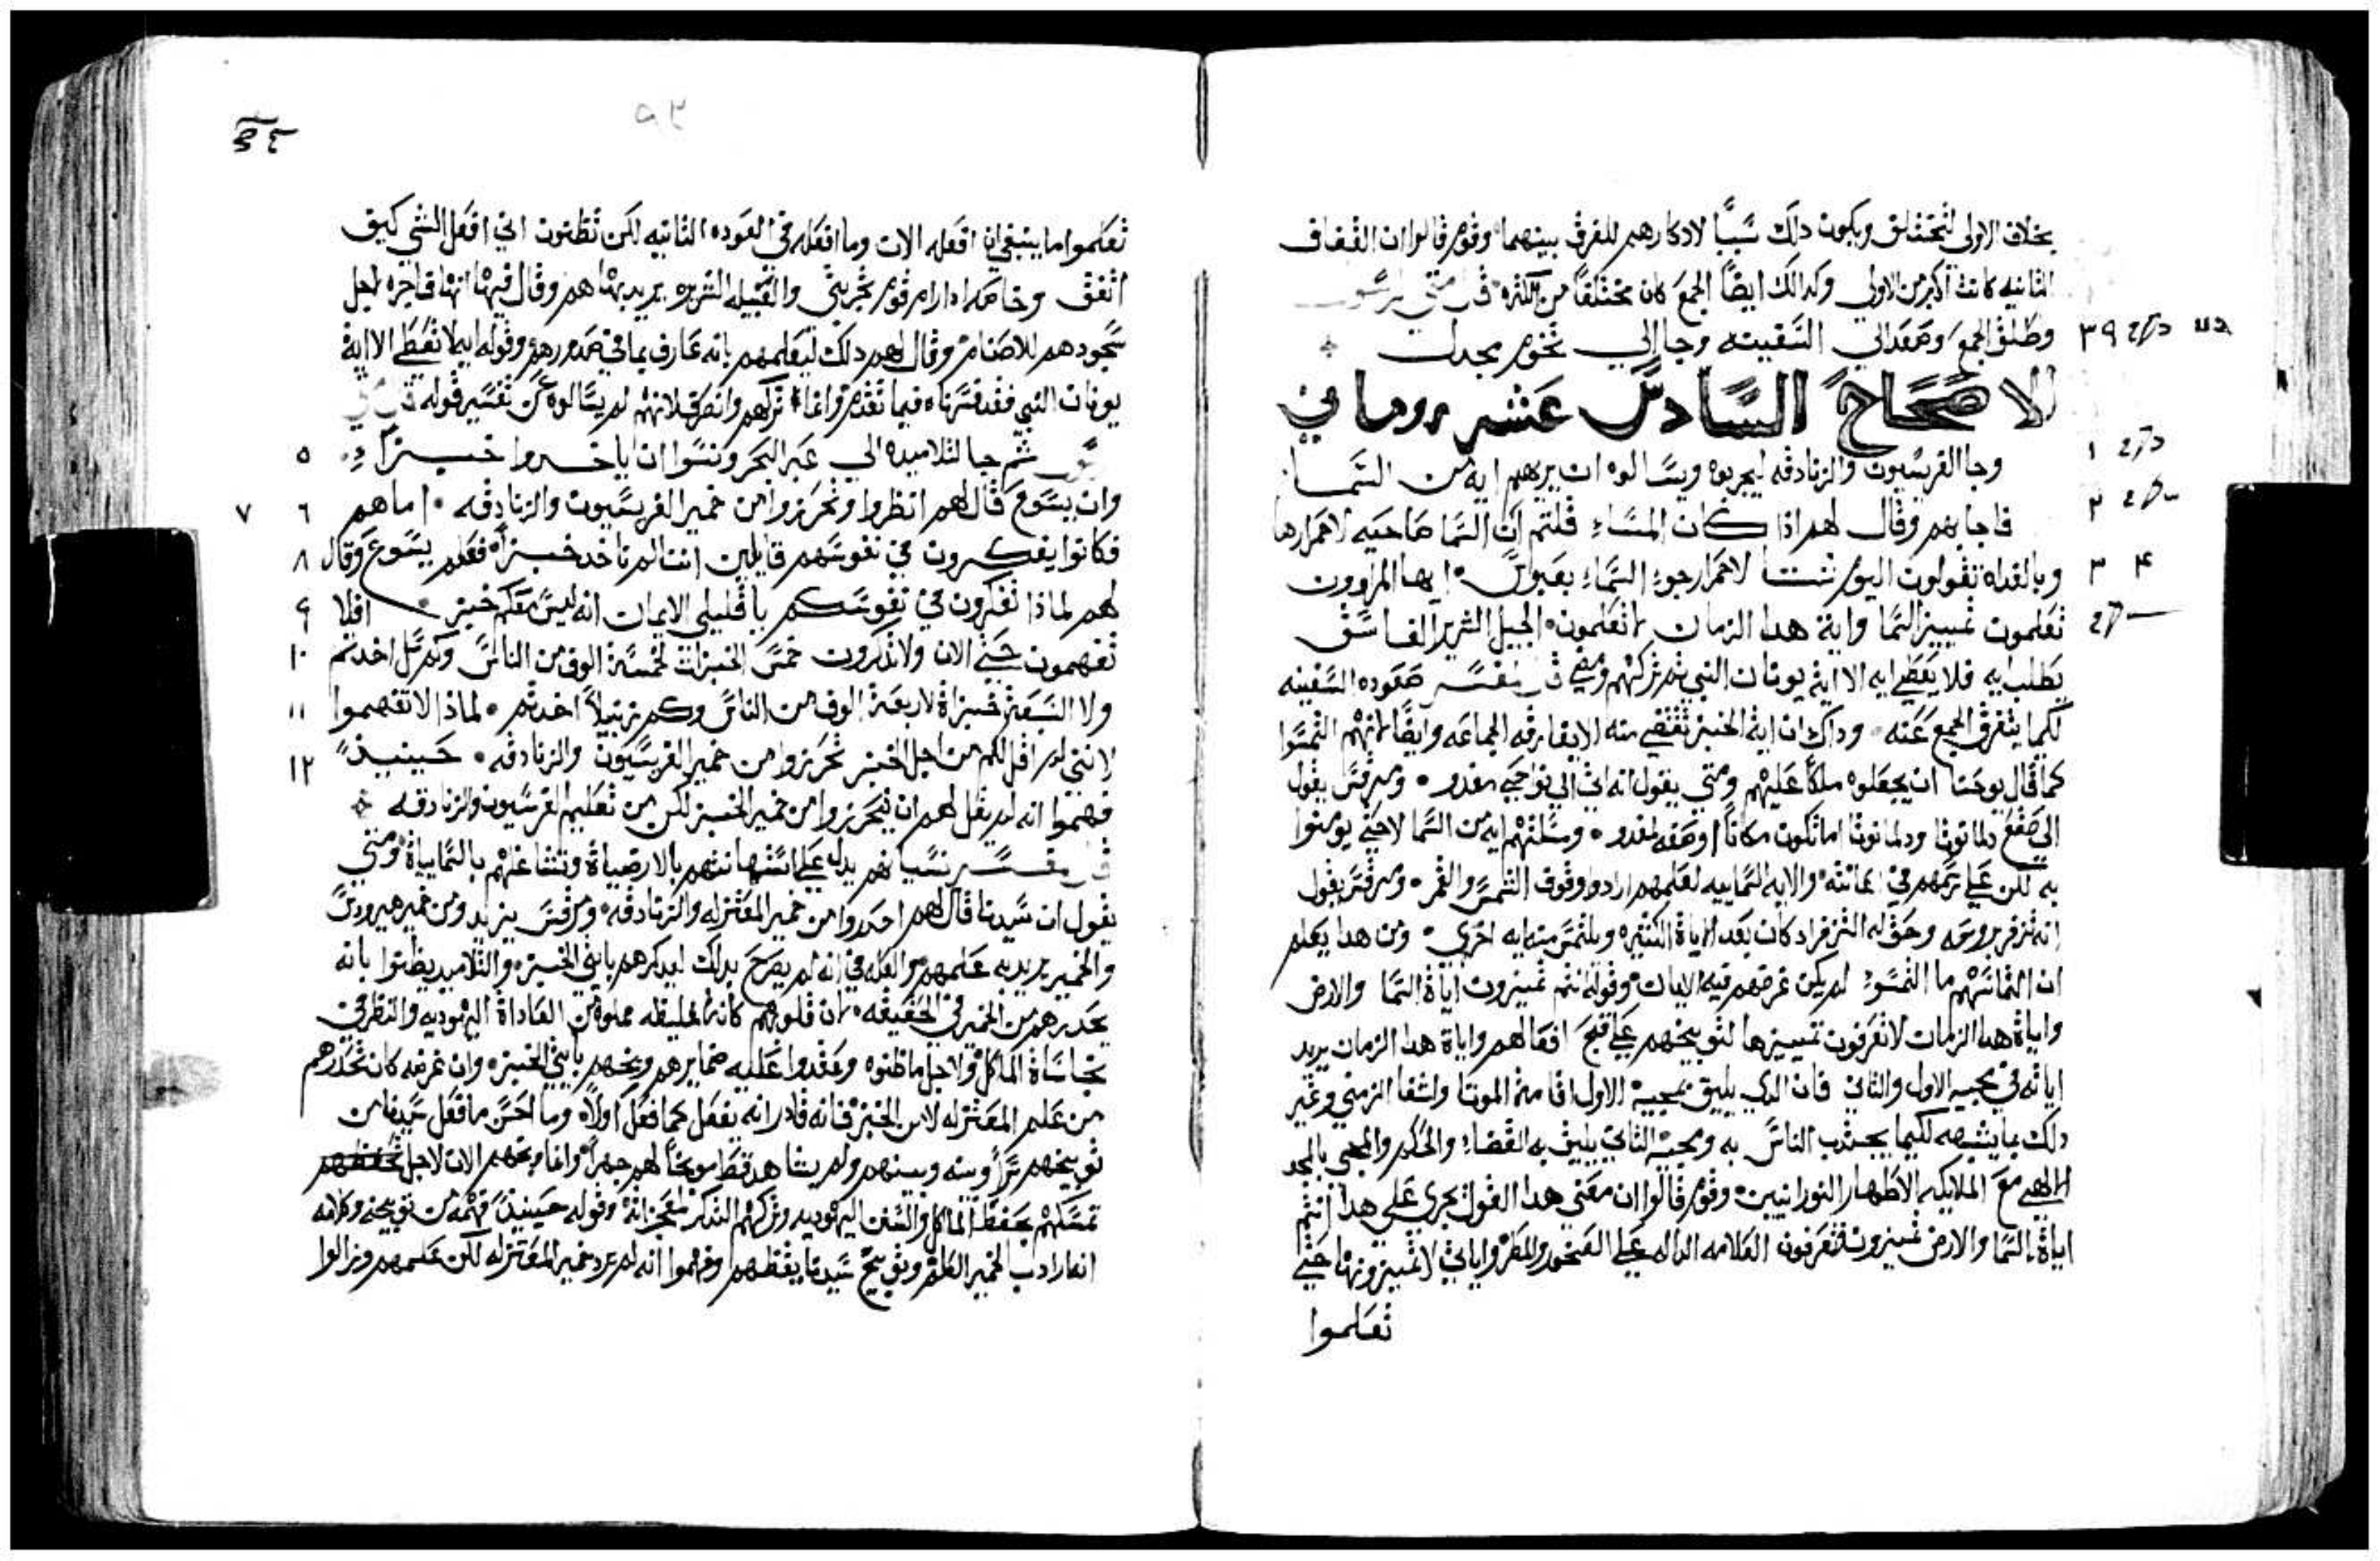 بخلاف الاولى لتختلف ويكون دلك سبباً لادكارهم للفرق بينهما وقوم قالوا ان القفاف
الثانيه كانت اكبر من الاولى وكدالك ايضاً الجمع كان مختلفاً من الكثره متى
٣٩ وطلق الجمع وصعد الي السفينه وجا الي تخوم مجدل
الاصحاح السادس عشر روماني
١ وجا الفريسيون والزنادقه ليجربوه ويسالوه ان يريهم ايه من السما
٢ فاجابهم وقال لهم اذا كان المساء قلتم ان السما صاحيه لاحمارها
٣ ۴ وبالغداه تقولون اليوم شتا لاحمار جو السماء بعبوس ايها المراوون
تعلمون تمييز السما واية هدا الزمان لا تعلمون الجيل الشرير الفاسق
يطلب ايه فلا يعطي ايه الا اية يونان النبي ثم تركهم ومضي صعوده السفينه
لكيما يتفرق الجمع عنه وداك ان اية الخبز تقتضي منه الا يفارقه الجماعه وايضاً لانهم التمسوا
كما قال يوحنا ان يجعلوه ملكاً عليهم ومتي يقول انه اتى الي نواحي مغدو ومرقس يقول
الي صقع دلمانوثا ودلمانوثا اما تكون مكاناً او صقع لمغدو ومسلتهم ايه من السما لا حتي يومنوا
به لكن علي رسمهم في اعانته والايه السماييه لعلهم ارادوا وقوف الشمس والقمر ومرقس يقول
انه تزفر بروحه وحق له التزفر اد كان بعد الاياة الكثيره ويلتمس منه ايه اخري ومن هدا يعلم
ان التماسهم ما التمسوه لم يكن غرضهم فيه الايمان وقوله انتم تميزون اياة السما والارض
واياة هدا الزمان لا تعرفون تمييزها لتوبيخهم علي قبح افعالهم واياة هدا الزمان يريد
اياته في مجييه الاول والثاني فان الدي يليق بمجييه الاول اقامة الموتا واشفا الزمني وغير
دلك بما يشبهه لكيما يجتدب الناس به ومجييه الثاني يليق به القضاء والحكم والمجي بالمجد
الالهي مع الملايكه الاطهار النورانيين وقوم قالوا ان معني هدا القول يجري علي هدا انتم
اياة السما والارض تميزون فتعرفون العلامه الداله علي الصحو والمطر واياتي لا تميزونها حتي
تعلموا
تعلموا ما ينبغي ان افعله الان وما افعله في العوده الثانيه لكن تظنون اني افعل الشي كيف
اتفق وخاصه ادا رام قوم تجربتي والقبيله الشريره يريد بها هم وقال فيها انها فاجره لاجل
سجودهم للاصنام وقال لهم دلك ليعلمهم بانه عارف بما في صدورهم وقوله ايه لا تعطي الا اية
يونان النبي فقد فسرناه فيما تقدم وانما تركهم وانصرف لانهم لم يسالوه عن تفسير قوله
٥ ثم جا التلاميده الي عبر البحر ونسوا ان ياخدوا خبزاً
٦ ٧ وان يسوع قال لهم انظروا وتحرزوا من خمير الفريسيون والزنادقه اما هم
٨ فكانوا يفكرون في نفوسهم قايلين اننا لم ناخد خبزاً فعلم يسوع وقال
٩ لهم لماذا تفكرون في نفوسكم يا قليلي الايمان انه ليس معكم خبز افلا
١٠ تفهمون حتي الان ولا تذكرون خمس الخبزات لخمسة الوف من الناس وكم سل اخدتم
١١ ولا السبعة خبزاة لاربعة الوف من الناس وكم زنبيلاً اخدتم لماذا لا تفهموا
١٢ لانني لم اقل لكم من اجل الخبز تحرزوا من خمير الفريسيون والزنادقه حينيذ
فهموا انه لم يقل لهم ان يتحرزوا من خمير الخبز لكن من تعليم الفريسيون والزنادقه
نسيانهم يدل علي استهانتهم بالارضياة وتشاغلهم بالسماييآة ومتي
يقول ان سيدنا قال لهم احدروا من خمير المعتزله والزنادقه ومرقس يزيد ومن خمير هيرودس
والخمير يريد به علمهم والعله في انه لم يصرح بدلك ليدكرهم بايتي الخبز والتلاميد يظنوا بانه
يحدرهم من الخمير في الحقيقه لان قلوبهم كانت غليظه مملوه من العاداة اليهوديه والنظر في
نجاساة الماكل ولاجل ما ظنوه وعقدوا عليه ضمايرهم وبخهم بايتي الخبز وان غرضه كان تحدرهم
من علم المعتزله لا من الخبز فانه قادر انه يفعل كما فعل اولاً وما احسن ما فعل سيدنا من
توبيخهم سراً وبينه وبينهم ولم يشاهد قط موبخاً لهم جهراً وانما وبخهم الان لاجل تحفظهم
تمسكهم بحفظ الماكل والسنن اليهوديه وتركهم التذكر لمعجزاته وقوله حينيذ فهمه من توبيخه وكلامه
انما اراد ب الخمير العلم وتوبيخ سيدنا يقظهم وفهموا انه لم يرد خمير المعتزله لكن علمهم وزالوا